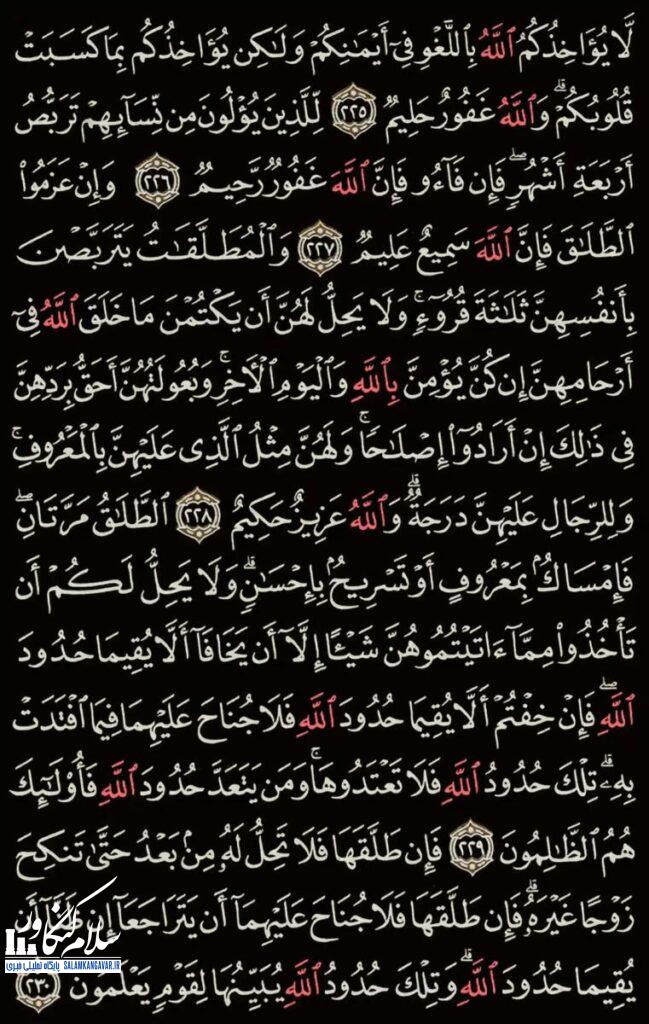 لَّا يُؤَاخِذُكُمُ ٱللَّهُ بِٱللَّغْوِ فِىٓ أَيْمَـٰنِكُمْ وَلَـٰكِن يُؤَاخِذُكُم بِمَا كَسَبَتْ
قُلُوبُكُمْ ۗ وَٱللَّهُ غَفُورٌ حَلِيمٌ ٢٢٥ لِّلَّذِينَ يُؤْلُونَ مِن نِّسَآئِهِمْ تَرَبُّصُ
أَرْبَعَةِ أَشْهُرٍ ۖ فَإِن فَآءُو فَإِنَّ ٱللَّهَ غَفُورٌ رَّحِيمٌ ٢٢٦ وَإِنْ عَزَمُوا۟
ٱلطَّلَـٰقَ فَإِنَّ ٱللَّهَ سَمِيعٌ عَلِيمٌ ٢٢٧ وَٱلْمُطَلَّقَـٰتُ يَتَرَبَّصْنَ
بِأَنفُسِهِنَّ ثَلَـٰثَةَ قُرُوٓءٍ ۚ وَلَا يَحِلُّ لَهُنَّ أَن يَكْتُمْنَ مَا خَلَقَ ٱللَّهُ فِىٓ
أَرْحَامِهِنَّ إِن كُنَّ يُؤْمِنَّ بِٱللَّهِ وَٱلْيَوْمِ ٱلْـَٔاخِرِ ۚ وَبُعُولَتُهُنَّ أَحَقُّ بِرَدِّهِنَّ
فِى ذَٰلِكَ إِنْ أَرَادُوٓا۟ إِصْلَـٰحًا ۚ وَلَهُنَّ مِثْلُ ٱلَّذِى عَلَيْهِنَّ بِٱلْمَعْرُوفِ ۚ
وَلِلرِّجَالِ عَلَيْهِنَّ دَرَجَةٌ ۗ وَٱللَّهُ عَزِيزٌ حَكِيمٌ ٢٢٨ ٱلطَّلَـٰقُ مَرَّتَانِ ۖ
فَإِمْسَاكٌۢ بِمَعْرُوفٍ أَوْ تَسْرِيحٌۢ بِإِحْسَـٰنٍ ۗ وَلَا يَحِلُّ لَكُمْ أَن
تَأْخُذُوا۟ مِمَّآ ءَاتَيْتُمُوهُنَّ شَيْـًٔا إِلَّآ أَن يَخَافَآ أَلَّا يُقِيمَا حُدُودَ
ٱللَّهِ ۖ فَإِنْ خِفْتُمْ أَلَّا يُقِيمَا حُدُودَ ٱللَّهِ فَلَا جُنَاحَ عَلَيْهِمَا فِيمَا ٱفْتَدَتْ
بِهِۦ ۗ تِلْكَ حُدُودُ ٱللَّهِ فَلَا تَعْتَدُوهَا ۚ وَمَن يَتَعَدَّ حُدُودَ ٱللَّهِ فَأُو۟لَـٰٓئِكَ
هُمُ ٱلظَّـٰلِمُونَ ٢٢٩ فَإِن طَلَّقَهَا فَلَا تَحِلُّ لَهُۥ مِنۢ بَعْدُ حَتَّىٰ تَنكِحَ
زَوْجًا غَيْرَهُۥ ۗ فَإِن طَلَّقَهَا فَلَا جُنَاحَ عَلَيْهِمَآ أَن يَتَرَاجَعَآ إِن ظَنَّآ أَن
يُقِيمَا حُدُودَ ٱللَّهِ ۗ وَتِلْكَ حُدُودُ ٱللَّهِ يُبَيِّنُهَا لِقَوْمٍ يَعْلَمُونَ ٢٣٠
سلام کنگاور
پایگاه تحلیلی خبری SALAMKANGAVAR.IR